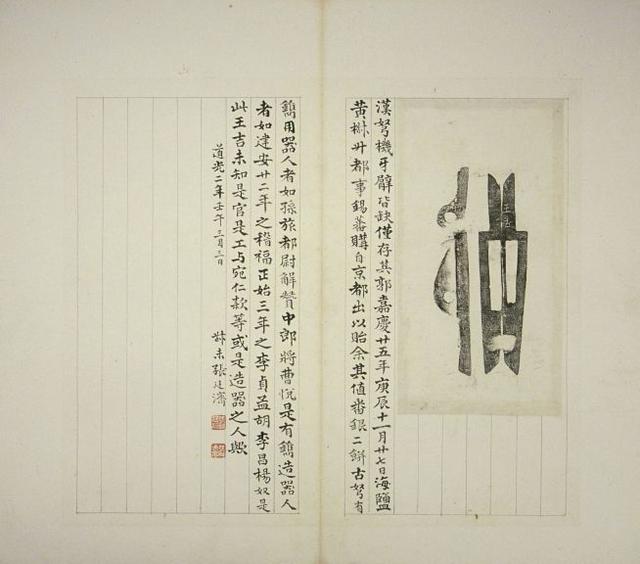 王吉
漢弩機牙臂皆缺僅存其郭嘉慶廿五年庚辰十一月廿七日海鹽
黃椒升都事錫蕃購自京都出以貽余其值番銀二餅古弩有
鐫用器人者如孫旅都尉解贊中郎將曹悅是有鐫造器人
者如建安廿二年之稽福正始三年之李貞益胡李昌楊奴是
此王吉未知是官是工与宛仁款等或是造器之人歟
道光二年壬午三月三日
叔未張廷濟